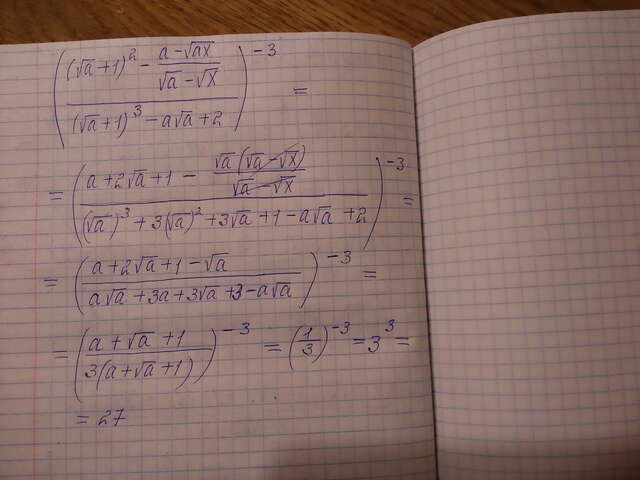 (((√a+1)² - (a-√ax)/(√a-√x)) / ((√a+1)³ - a√a+2))⁻³ =
= ((a+2√a+1 - √a(√a-√x)/(√a-√x)) / ((√a)³+3(√a)²+3√a+1-a√a+2))⁻³ =
= ((a+2√a+1-√a) / (a√a+3a+3√a+3-a√a))⁻³ =
= ((a+√a+1) / (3(a+√a+1)))⁻³ = (1/3)⁻³ = 3³ =
= 27